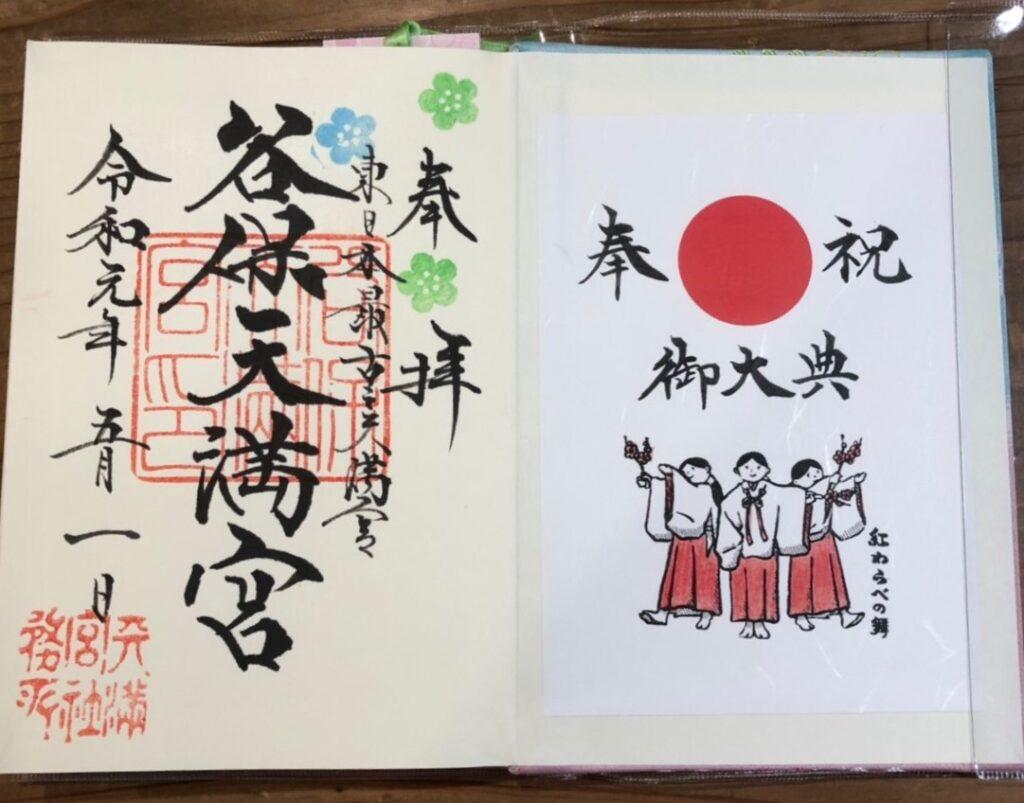 奉拝
東日本最古天満宮
谷保天満宮
令和元年五月一日
天満
宮社
務所
奉祝
御大典
紅わらべの舞